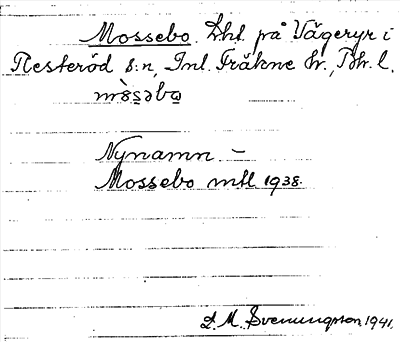 Mossebo. Lht. på Vägeryr i
Resteröd s:n, Inl. Fräkne hr., Bh. l.
mòsəbo
Nynamn –
Mossebo mtl 1938.
L. M. Svenungsson 1941.